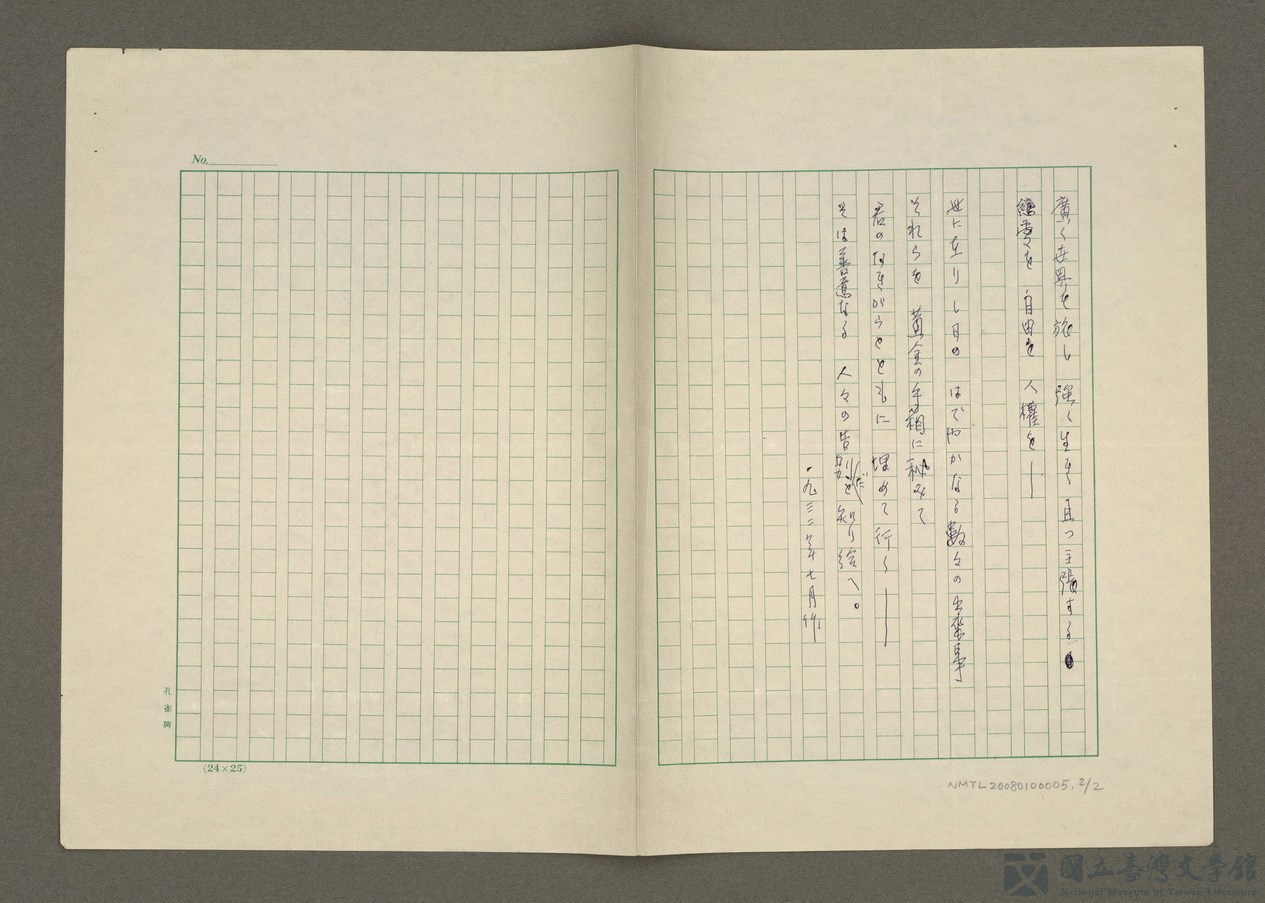 廣く世界を旅し　強く生き　且つ主張する
戀愛を　自由を　人權を──
世に在りし日の　はでやかなる數々の出來事
それらを　黄金の手箱に秘みて
君のなきがらとともに　埋めて行く──
そは善意なる　人々の告別だと知り給へ。
一九三二年七月作
No.
孔雀牌
(24×25)
NMTL20080100005. 2/2
國立臺灣文學館
National Museum of Taiwan Literature